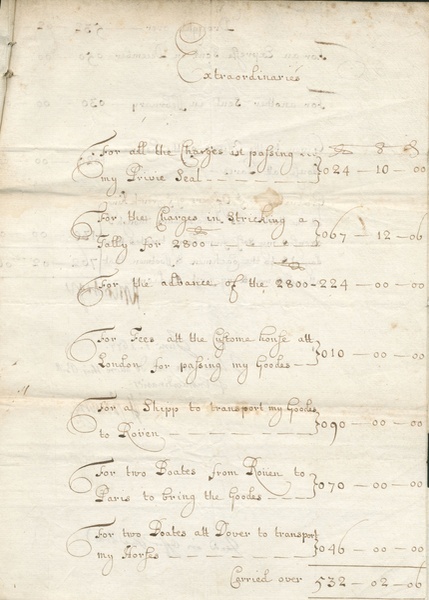 Extraordinaries
lb s d
For all the Charges in passing
my Privie Seal — 024 — 10 — 00
For the Charges in Stricking a
Tally for 2800 — 067 — 12 — 06
For the advance of the 2800 - 224 — 00 — 00
For Fees att the Custome house att
London for passing my Goodes — 010 — 00 — 00
For a Shipp to transport my Goodes
to Roüen — 090 — 00 — 00
For two Boates from Roüen to
Paris to bring the Goodes — 070 — 00 — 00
For two Boates att Dover to transport
my Horses — 046 — 00 — 00
Carried over 532 — 02 — 06